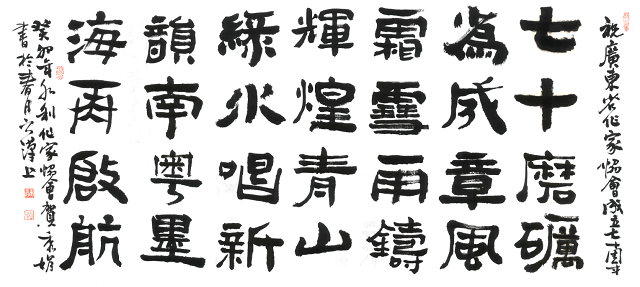 祝廣東省作家協會成立七十周年
七十磨礪
為成章風
霜雪雨鑄
輝煌青山
綠水唱新
韻南粵墨
海再啟航
癸卯年水利作家協會賀
書於春月